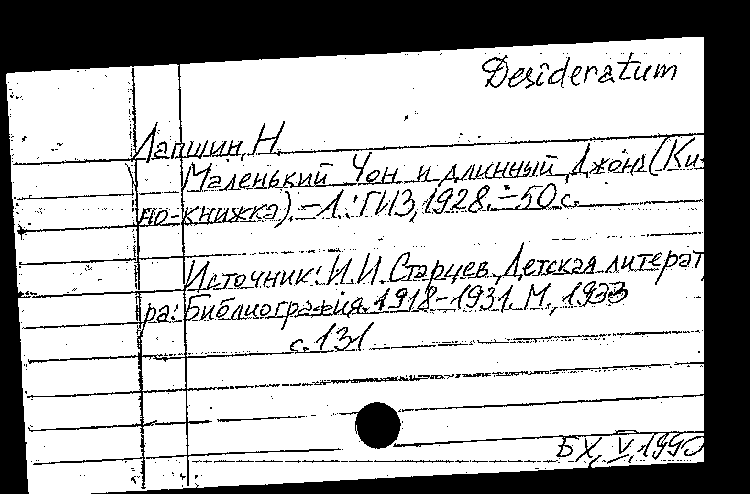 Desideratum
Лапшин, Н.
Маленький Чон и длинный Джонд (Ки-
но-книжка). – Л.: ГИЗ, 1928. – 50 с.
Источник: И.И. Старцев Детская литерат
ра: Библиография. 1918-1931. М., 1933
с. 131
БХ, V, 1990